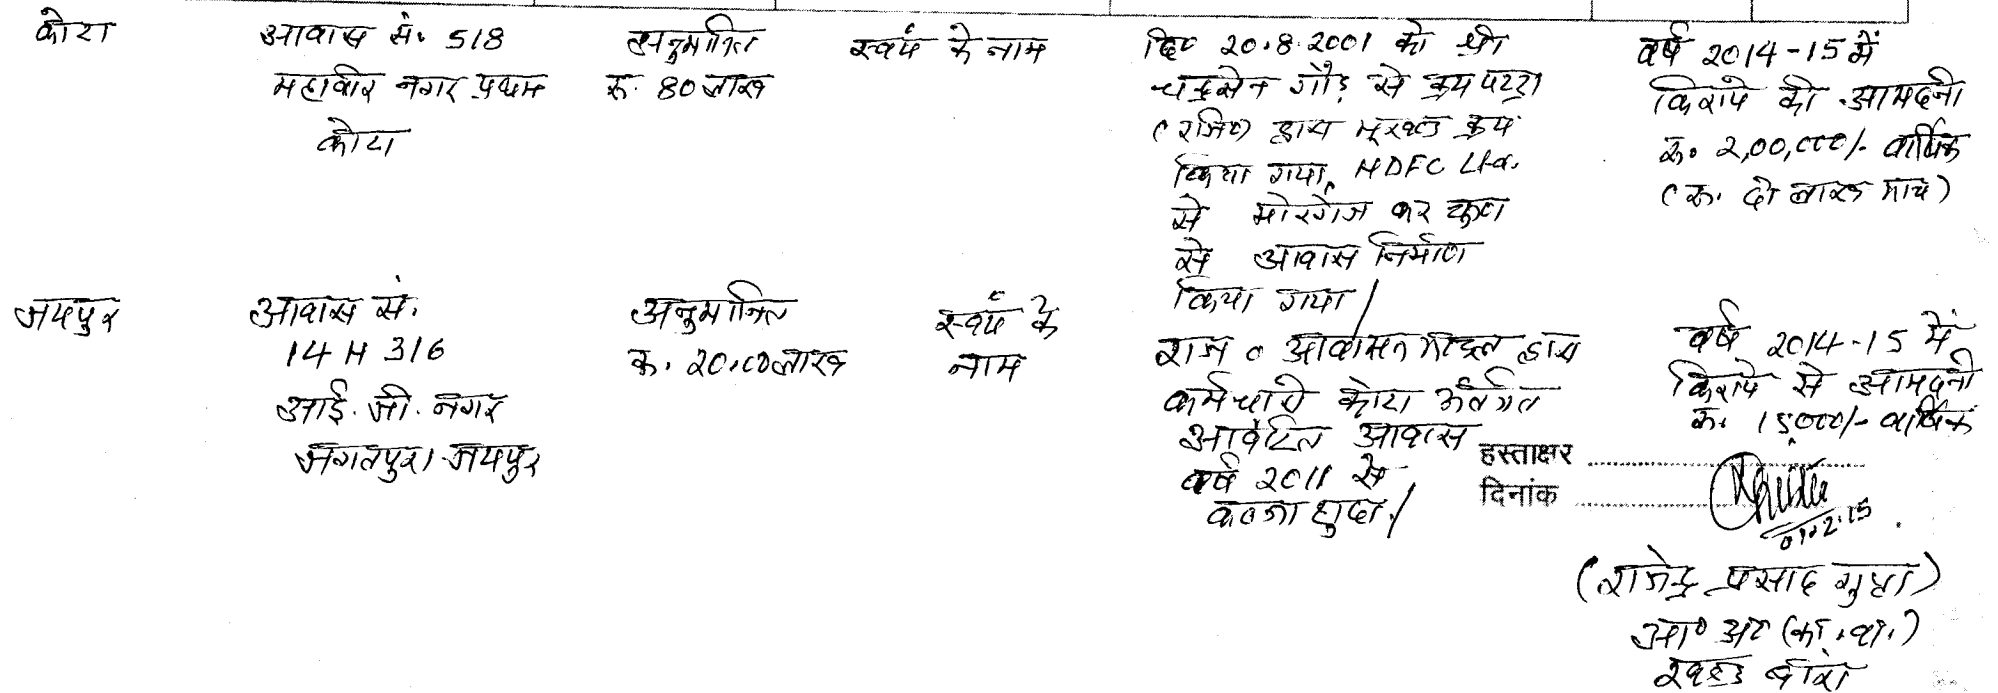 कोटा
आवास सं. 518
महावीर नगर प्रथम
कोटा
अनुमानित
रु. 80 लाख
स्वयं के नाम
दि० 20.8.2001 को श्री
चन्द्रसेन गौड़ से क्रय पट्टा
(रजि०) द्वारा भूखण्ड क्रय
किया गया, HDFC Ltd.
से मोरगेज कर ऋण
से आवास निर्माण
किया गया।
वर्ष 2014-15 में
किराये की आमदनी
रु. 2,00,000/- वार्षिक
(रु. दो लाख मात्र)
जयपुर
आवास सं.
14 H 316
आई. जी. नगर
जगतपुरा जयपुर
अनुमानित
रु. 20.00 लाख
स्वयं के
नाम
राज० आवासन मण्डल द्वारा
कर्मचारी कोटा अंर्तगत
आवंटित आवास
वर्ष 2011 से
कब्जा शुदा।
वर्ष 2014-15 में
किराये से आमदनी
रु. 15,000/- वार्षिक
हस्ताक्षर
दिनांक
(राजेन्द्र प्रसाद गुप्ता)
खण्ड बारां